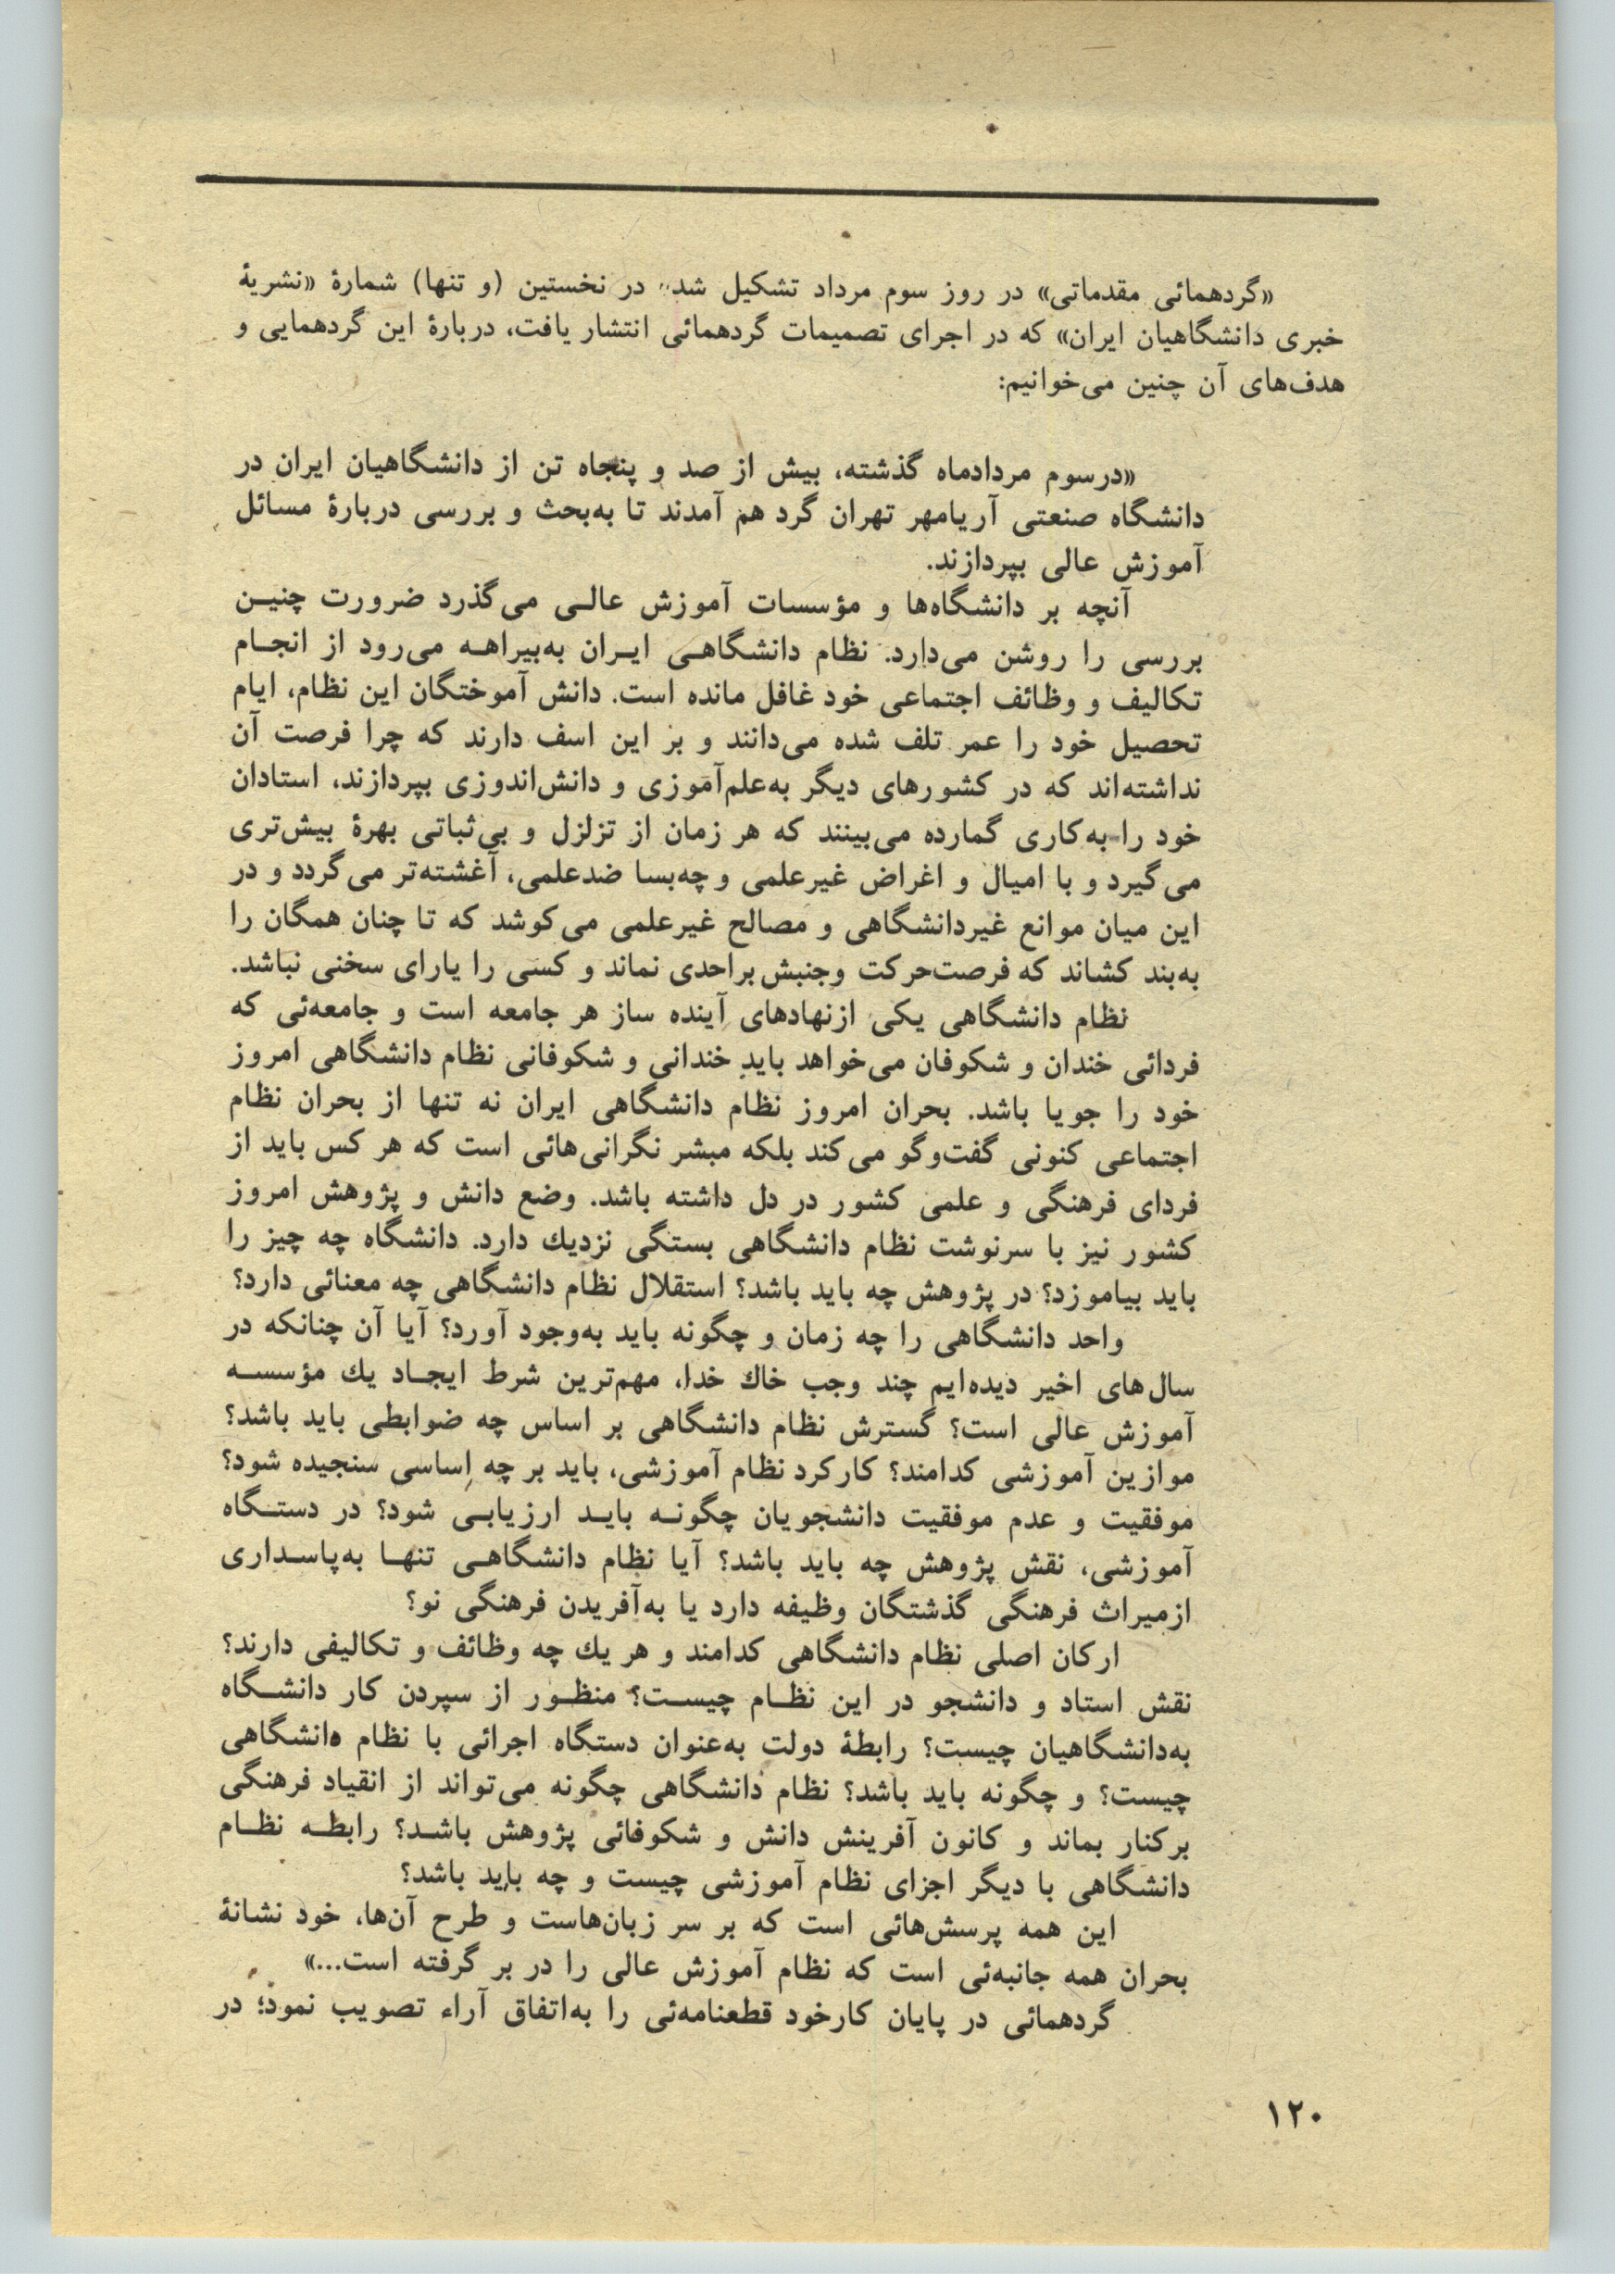 «گردهمائی مقدماتی» در روز سوم مرداد تشکیل شد. در نخستین (و تنها) شمارهٔ «نشریهٔ
خبری دانشگاهیان ایران» که در اجرای تصمیمات گردهمائی انتشار یافت، دربارهٔ این گردهمایی و
هدف‌های آن چنین می‌خوانیم:
«درسوم مردادماه گذشته، بیش از صد و پنجاه تن از دانشگاهیان ایران در
دانشگاه صنعتی آریامهر تهران گرد هم آمدند تا به‌بحث و بررسی دربارهٔ مسائل
آموزش عالی بپردازند.
آنچه بر دانشگاه‌ها و مؤسسات آموزش عالـی می‌گذرد ضرورت چنیـن
بررسی را روشن می‌دارد. نظام دانشگاهـی ایـران به‌بیراهـه می‌رود از انجـام
تکالیف و وظائف اجتماعی خود غافل مانده است. دانش آموختگان این نظام، ایام
تحصیل خود را عمر تلف شده می‌دانند و بر این اسف دارند که چرا فرصت آن
نداشته‌اند که در کشورهای دیگر به‌علم‌آموزی و دانش‌اندوزی بپردازند، استادان
خود را به‌کاری گمارده می‌بینند که هر زمان از تزلزل و بی‌ثباتی بهرهٔ بیش‌تری
می‌گیرد و با امیال و اغراض غیرعلمی و چه‌بسا ضدعلمی، آغشته‌تر می‌گردد و در
این میان موانع غیردانشگاهی و مصالح غیرعلمی می‌کوشد که تا چنان همگان را
به‌بند کشاند که فرصت‌حرکت وجنبش براحدی نماند و کسی را یارای سخنی نباشد.
نظام دانشگاهی یکی ازنهادهای آینده ساز هر جامعه است و جامعه‌ئی که
فردائی خندان و شکوفان می‌خواهد باید خندانی و شکوفانی نظام دانشگاهی امروز
خود را جویا باشد. بحران امروز نظام دانشگاهی ایران نه تنها از بحران نظام
اجتماعی کنونی گفت‌وگو می‌کند بلکه مبشر نگرانی‌هائی است که هر کس باید از
فردای فرهنگی و علمی کشور در دل داشته باشد. وضع دانش و پژوهش امروز
کشور نیز با سرنوشت نظام دانشگاهی بستگی نزدیك دارد. دانشگاه چه چیز را
باید بیاموزد؟ در پژوهش چه باید باشد؟ استقلال نظام دانشگاهی چه معنائی دارد؟
واحد دانشگاهی را چه زمان و چگونه باید به‌وجود آورد؟ آیا آن چنانکه در
سال‌های اخیر دیده‌ایم چند وجب خاك خدا، مهم‌ترین شرط ایجـاد یك مؤسسـه
آموزش عالی است؟ گسترش نظام دانشگاهی بر اساس چه ضوابطی باید باشد؟
موازین آموزشی کدامند؟ کارکرد نظام آموزشی، باید بر چه اساسی سنجیده شود؟
موفقیت و عدم موفقیت دانشجویان چگونـه بایـد ارزیابـی شود؟ در دستـگاه
آموزشی، نقش پژوهش چه باید باشد؟ آیا نظام دانشگاهـی تنهـا به‌پاسـداری
ازمیراث فرهنگی گذشتگان وظیفه دارد یا به‌آفریدن فرهنگی نو؟
ارکان اصلی نظام دانشگاهی کدامند و هر یك چه وظائف و تکالیفی دارند؟
نقش استاد و دانشجو در این نظـام چیسـت؟ منظـور از سپردن کار دانشـگاه
به‌دانشگاهیان چیست؟ رابطهٔ دولت به‌عنوان دستگاه اجرائی با نظام دانشگاهی
چیست؟ و چگونه باید باشد؟ نظام دانشگاهی چگونه می‌تواند از انقیاد فرهنگی
برکنار بماند و کانون آفرینش دانش و شکوفائی پژوهش باشـد؟ رابطـه نظـام
دانشگاهی با دیگر اجزای نظام آموزشی چیست و چه باید باشد؟
این همه پرسش‌هائی است که بر سر زبان‌هاست و طرح آن‌ها، خود نشانهٔ
بحران همه جانبه‌ئی است که نظام آموزش عالی را در بر گرفته است...»
گردهمائی در پایان کارخود قطعنامه‌ئی را به‌اتفاق آراء تصویب نمود؛ در
۱۲۰